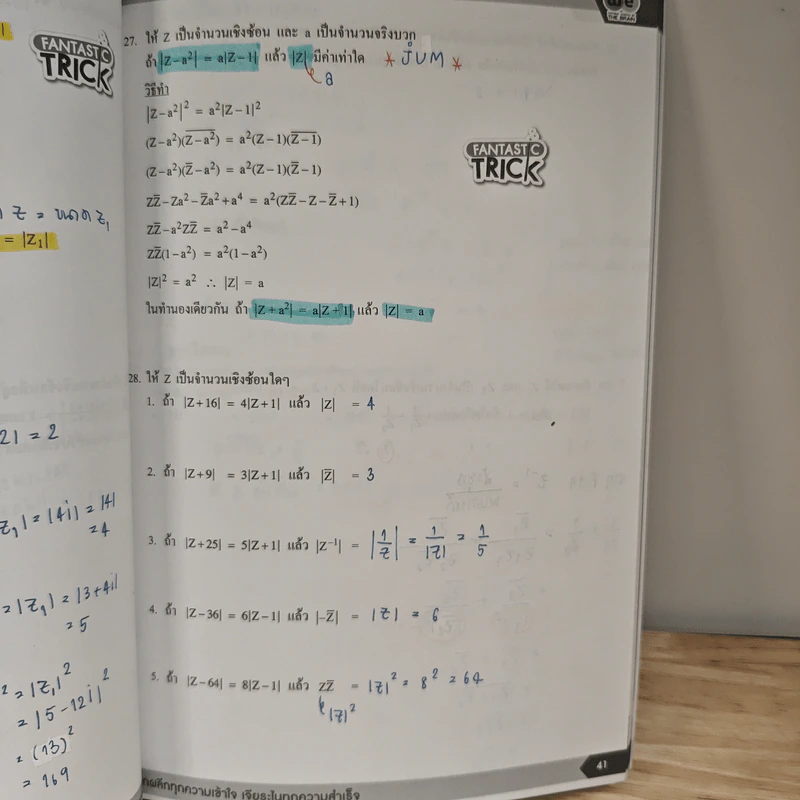 FANTASTIC
TRICK
Z = ขนาด Z₁
= |Z₁|
2| = 2
Z₁| = |4i| = |4|
= 4
= |Z₁| = |3+4i|
= 5
² = |Z₁|²
= |5-12i|²
= (13)²
= 169
THE BRAIN
27. ให้ Z เป็นจำนวนเชิงซ้อน และ a เป็นจำนวนจริงบวก
ถ้า |Z-a²| = a|Z-1| แล้ว |Z| มีค่าเท่าใด * JUM *
a
วิธีทำ
|Z-a²|² = a²|Z-1|²
(Z-a²)(Z̅-̅a̅²̅) = a²(Z-1)(Z̅-̅1̅)
(Z-a²)(Z̅-a²) = a²(Z-1)(Z̅-1)
ZZ̅-Za²-Z̅a²+a⁴ = a²(ZZ̅-Z-Z̅+1)
ZZ̅-a²ZZ̅ = a²-a⁴
ZZ̅(1-a²) = a²(1-a²)
|Z|² = a² ∴ |Z| = a
ในทำนองเดียวกัน ถ้า |Z+a²| = a|Z+1| แล้ว |Z| = a
FANTASTIC
TRICK
28. ให้ Z เป็นจำนวนเชิงซ้อนใดๆ
1. ถ้า |Z+16| = 4|Z+1| แล้ว |Z| = 4
2. ถ้า |Z+9| = 3|Z+1| แล้ว |Z̅| = 3
3. ถ้า |Z+25| = 5|Z+1| แล้ว |Z⁻¹| = |1/Z| = 1/|Z| = 1/5
4. ถ้า |Z-36| = 6|Z-1| แล้ว |-Z̅| = |Z| = 6
5. ถ้า |Z-64| = 8|Z-1| แล้ว ZZ̅ = |Z|² = 8² = 64
|Z|²
41
ทุกความเข้าใจ เจียระไนทุกความสำเร็จ